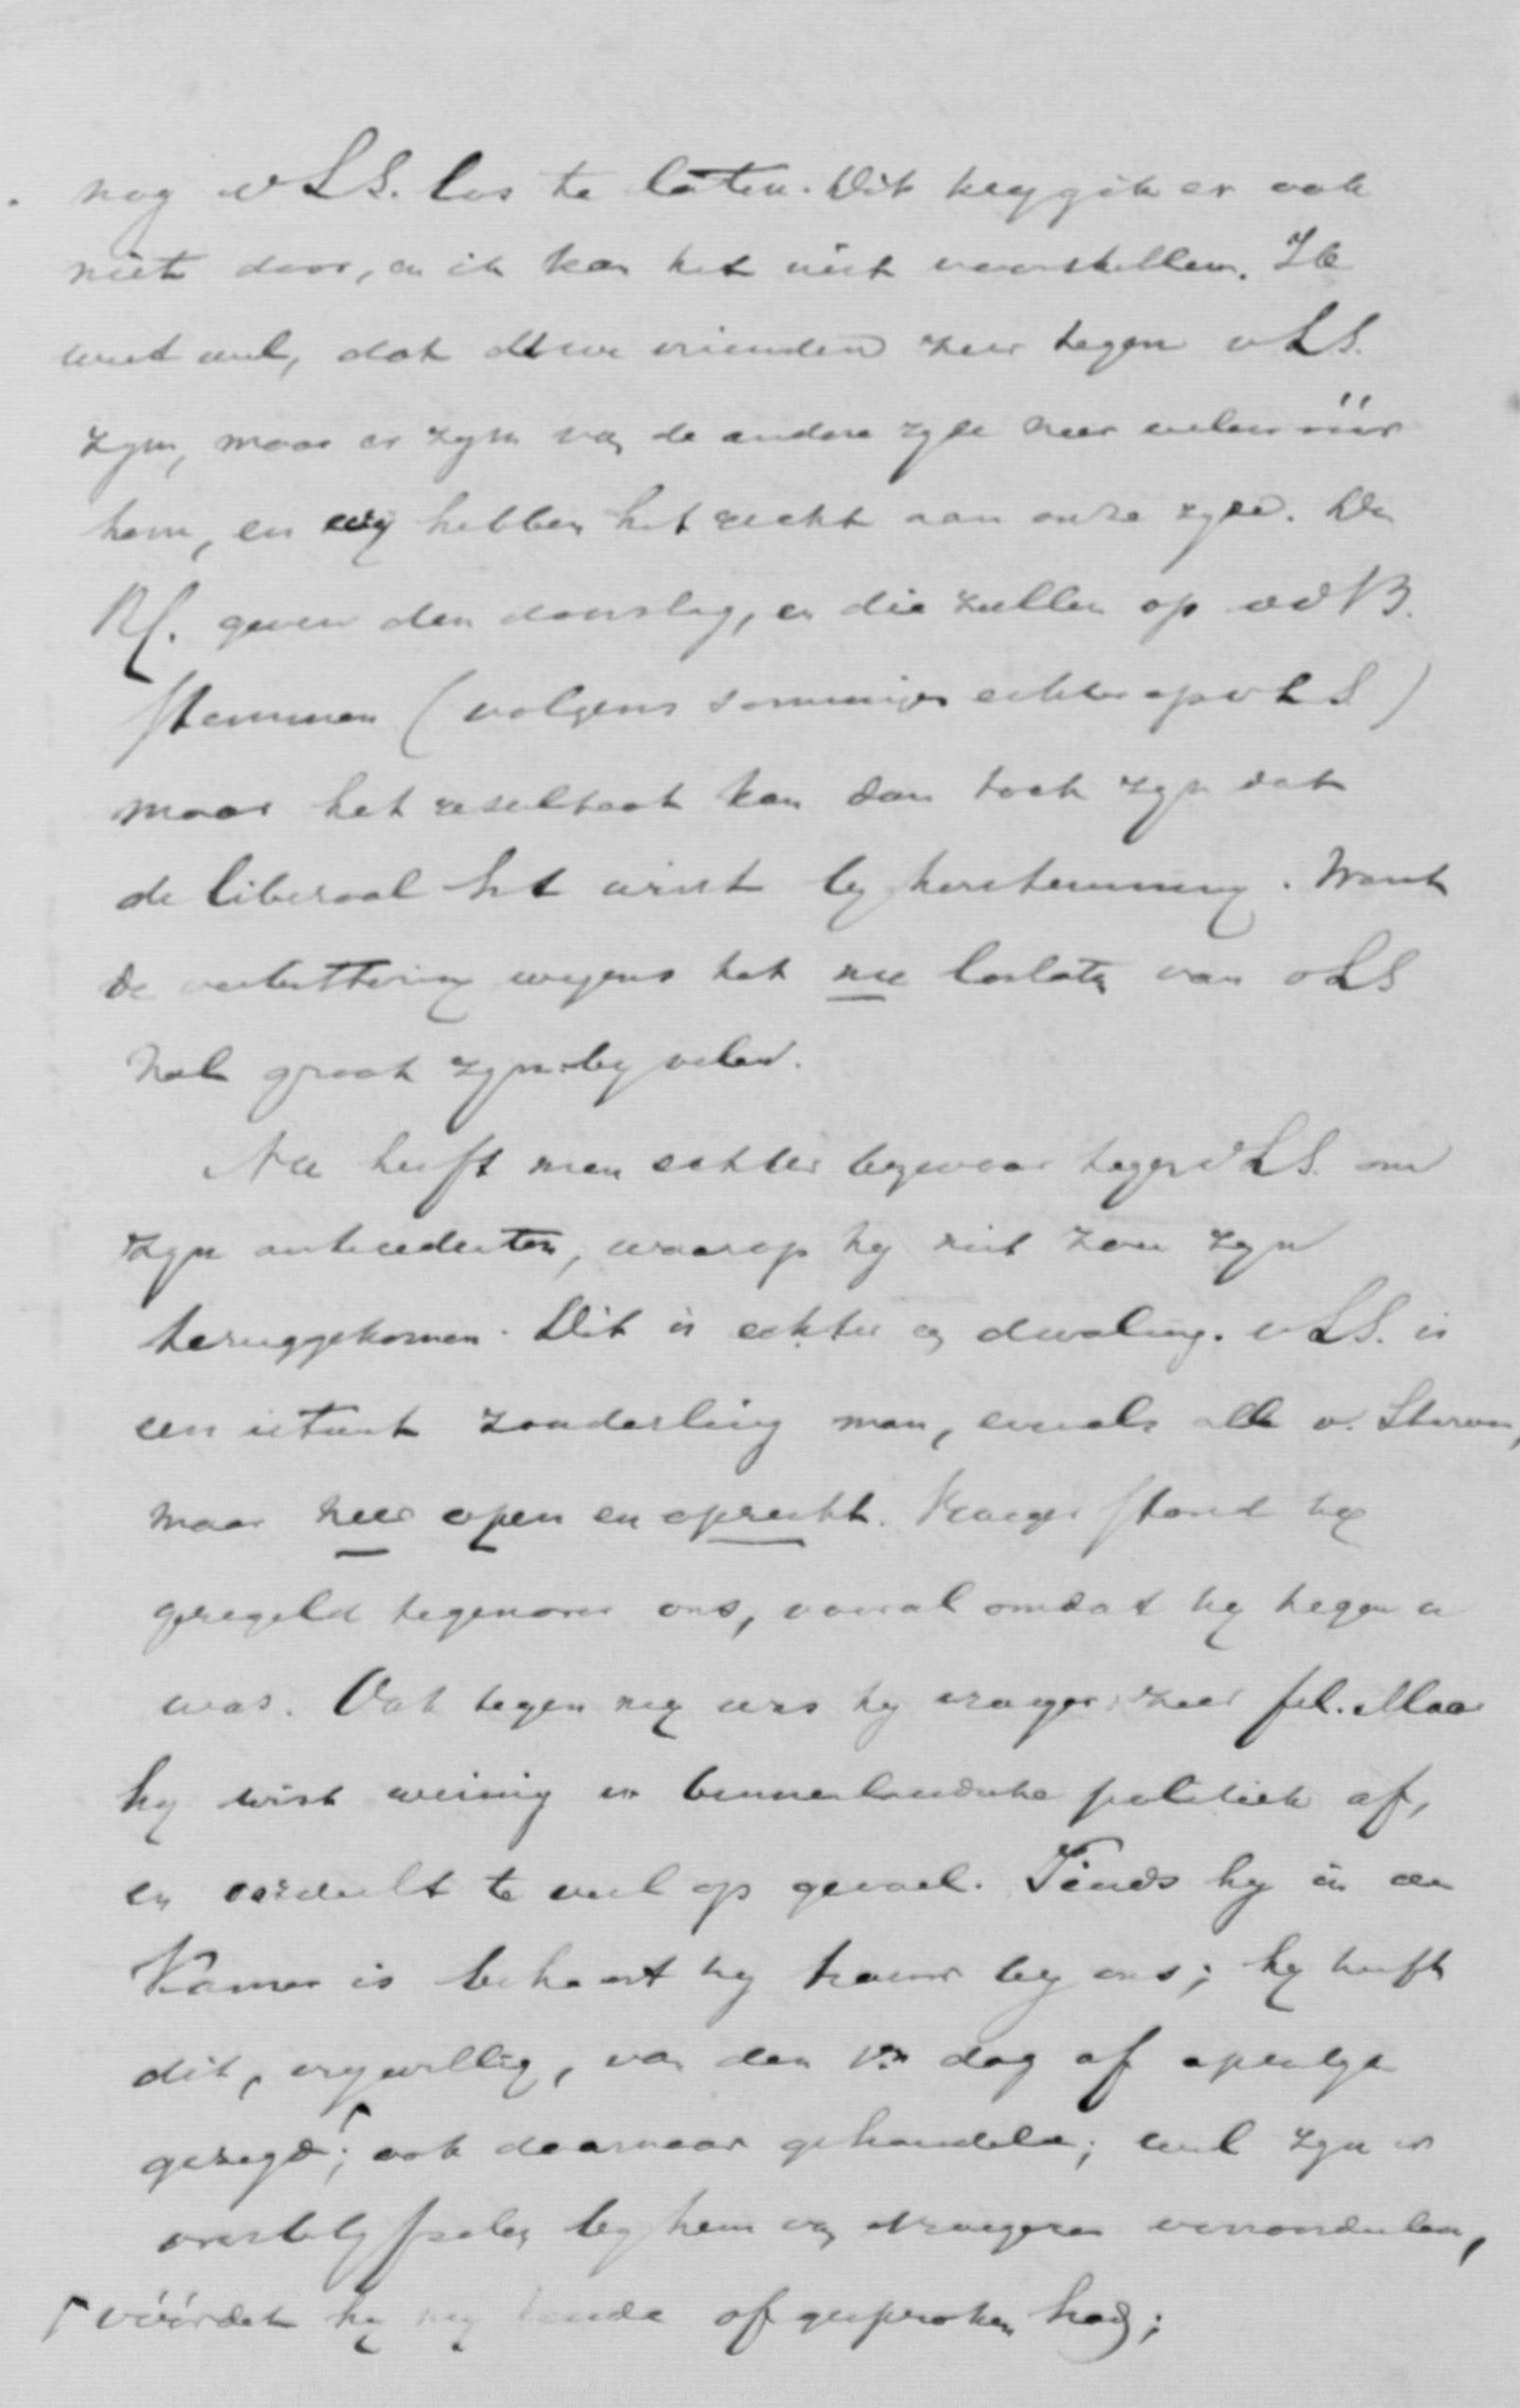 nog v L S. los te laten. Dit kryg ik er ook
niet door, en ik kan het niet voorstellen. Ik
weet wel, dat uwe vrienden zeer tegen v L S.
zyn, maar er zyn van de andere zyde zeer velen vóór
hem, en wij hebben het recht aan onze zyde. De
Rf. geven den doorslag, en die zullen op v d B.
stemmen (volgens sommigen echter op v L S)
maar het resultaat kan dan toch zyn dat
de liberaal het wint by herstemming. Want
de verbittering wegens het nu loslaten van v L S
zal groot zyn by velen.
Nu heeft men echter bezwaar tegen v L S. om
zyn antecedenten, waarop hy niet zou zyn
teruggekomen. Dit is echter een dwaling. v L S. is
een uiterst zonderling man, evenals alle v. Starum,
maar zeer open en oprecht. Vroeger stond hy
geregeld tegenover ons, vooral omdat hy tegen u
was. Ook tegen my was hy vroeger zeer fel. Maar
hy wist weinig van binnenlandsche politiek af,
en oordeelt te veel op gevoel. Sinds hy in de
Kamer is behoort hy trouw by ons; hy heeft
dit, vrywillig, van den 1en dag af openlyk
gezegd; ook daarnaar gehandeld; wel zyn er
overblyfselen by hem van vroegere vooroordeelen,
vóórdat hy my kende of gesproken had;